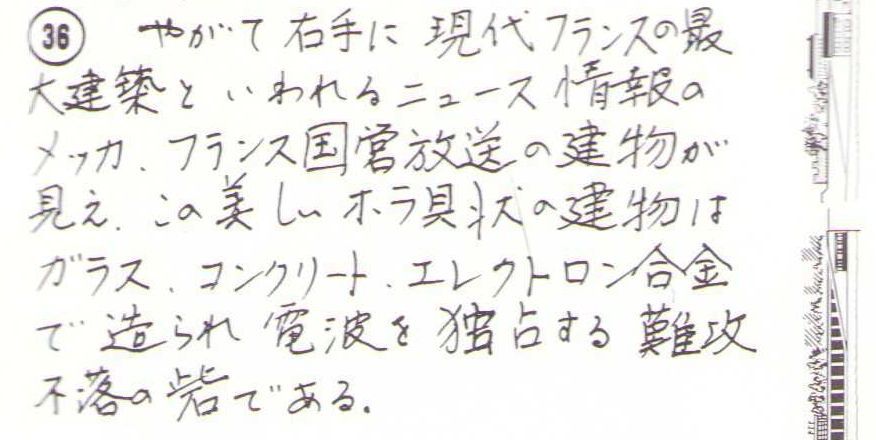 36 やがて右手に現代フランスの最
大建築といわれるニュース情報の
メッカ、フランス国営放送の建物が
見え、この美しいホラ貝状の建物は
ガラス、コンクリート、エレクトロン合金
で造られ電波を独占する難攻
不落の砦である。